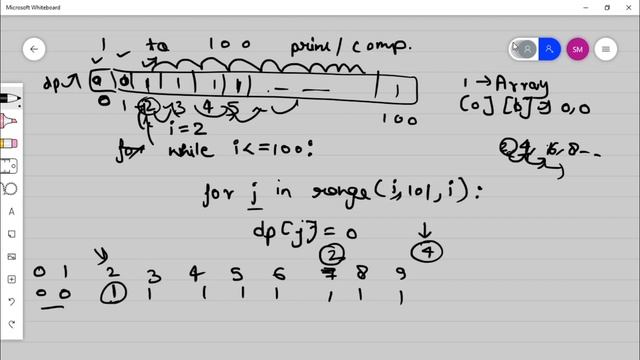 Microsoft Whiteboard
SM
1 to 100 prime/comp.
dp 0 0 1 1 1 1 1 1
0 1 2 3 4 5 100
1 → Array
[0] [1] = 0,0
i=2
2, 4, 6, 8 - -
for while i<=100:
for j in range(i,101,i):
dp[j]=0
2 4
0 1 2 3 4 5 6 7 8 9
0 0 1 1 1 1 1 1 1 1